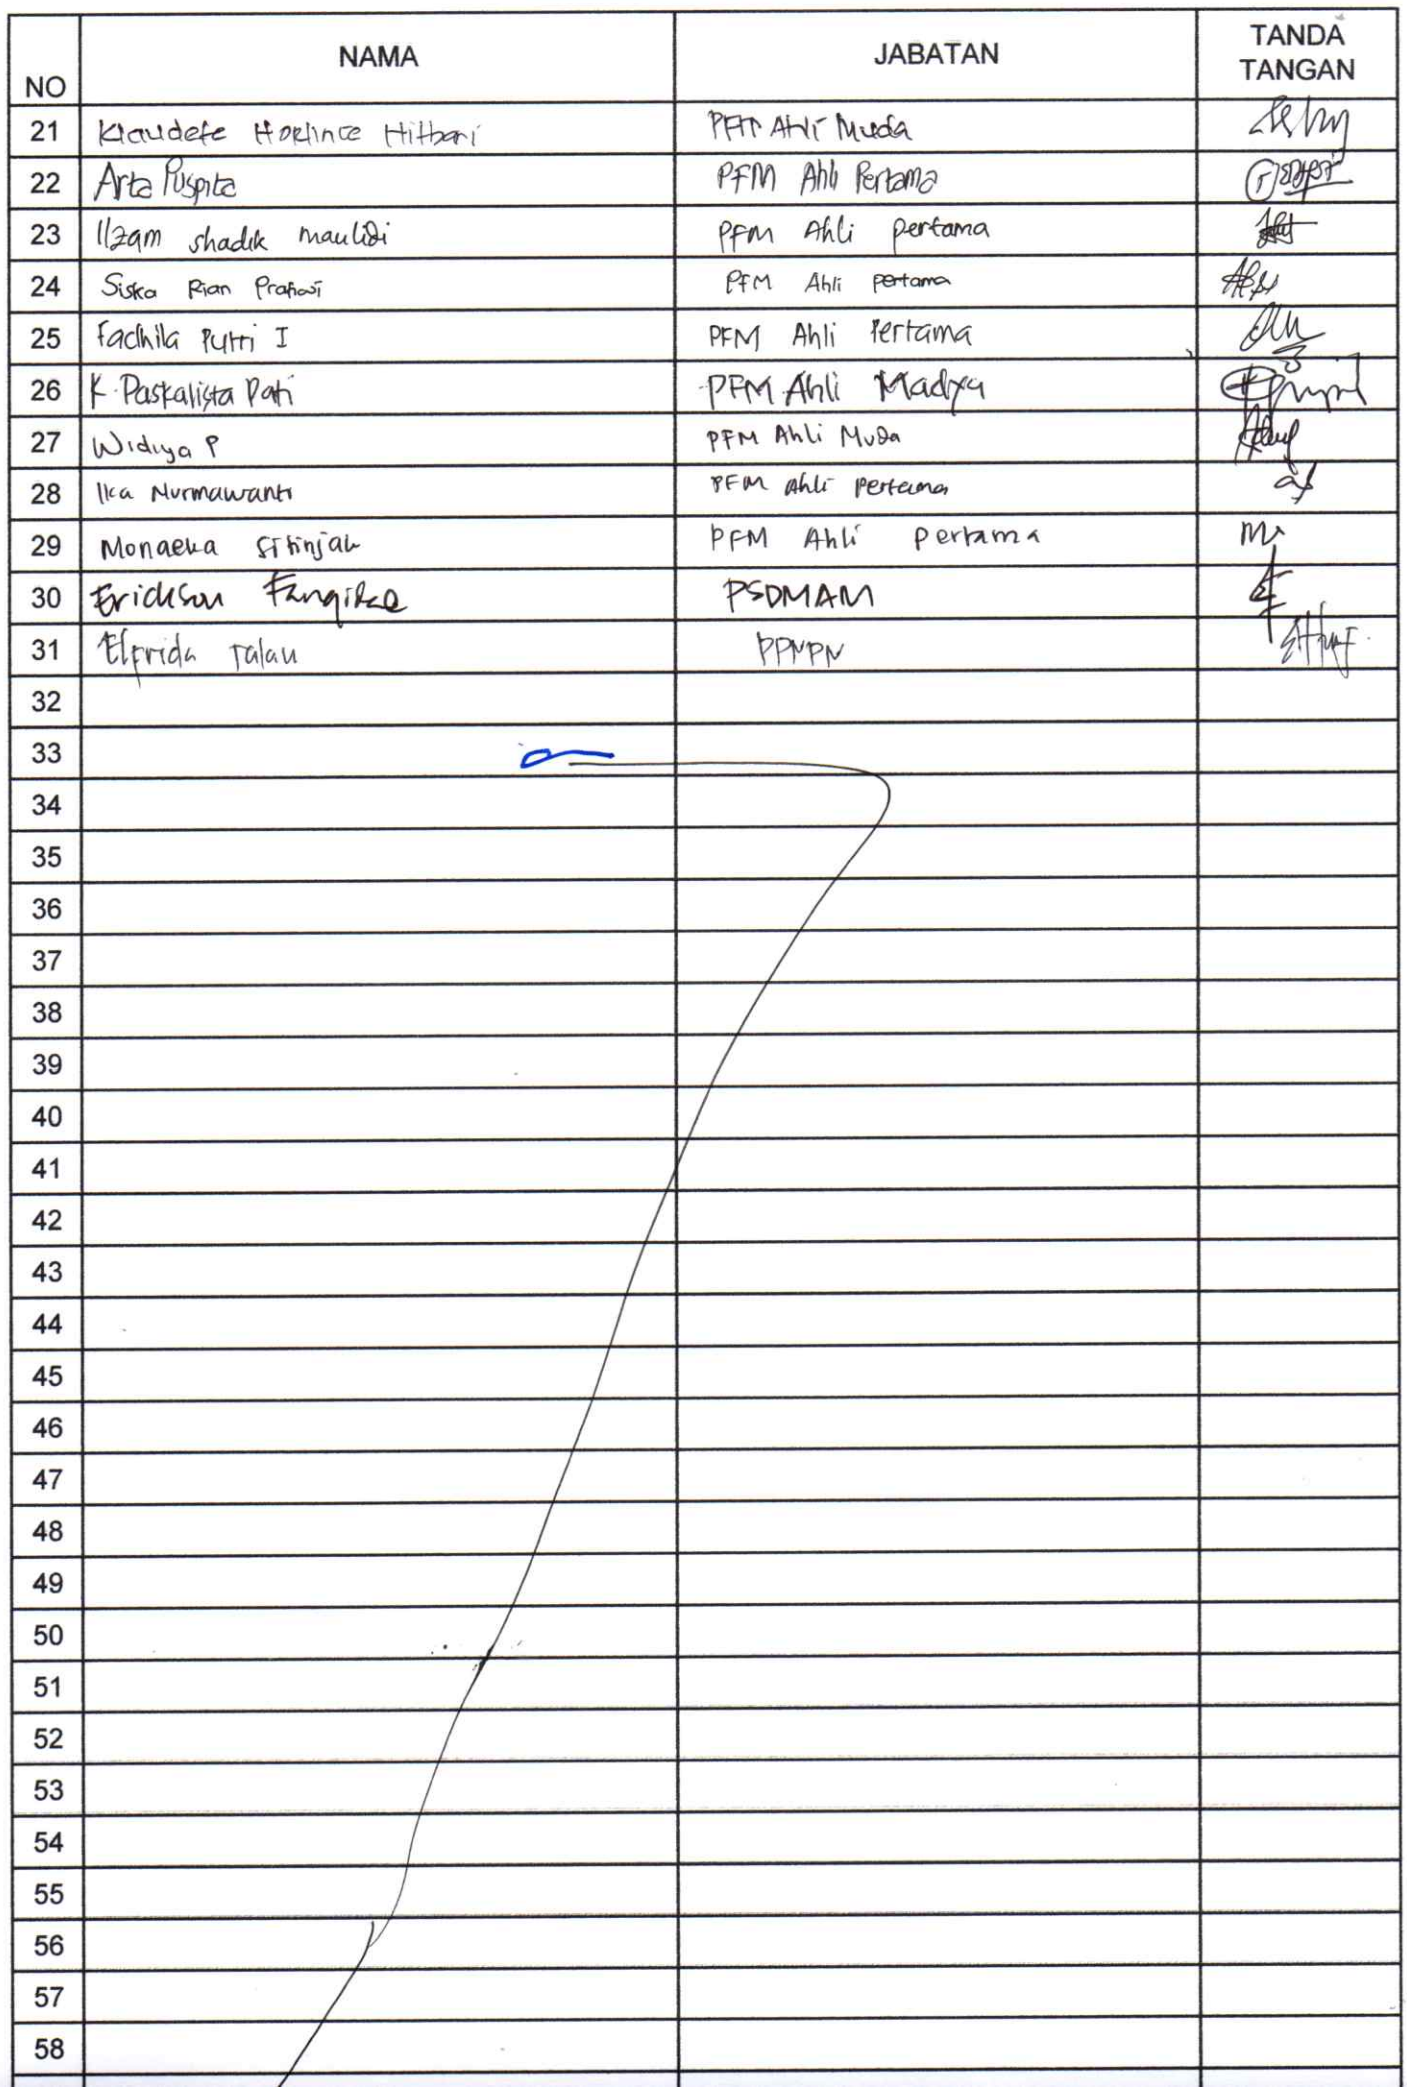 NO NAMA JABATAN TANDA TANGAN
21 Klaudete Hortince Hitbari PFM Ahli Muda
22 Arta Puspita PFM Ahli Pertama
23 Ilzam shadik maulidi PFM Ahli pertama
24 Siska Rian PFM Ahli pertama
25 Fadhila Putri I PFM Ahli Pertama
26 K. Paskalista Pati PFM Ahli Madya
27 Widiya P PFM Ahli Muda
28 Ika Nurmawanti PFM Ahli Pertama
29 Monaeka Sitinjak PFM Ahli Pertama
30 Erickson PSDMAM
31 Elfrida Talau PPNPN
32
33
34
35
36
37
38
39
40
41
42
43
44
45
46
47
48
49
50
51
52
53
54
55
56
57
58